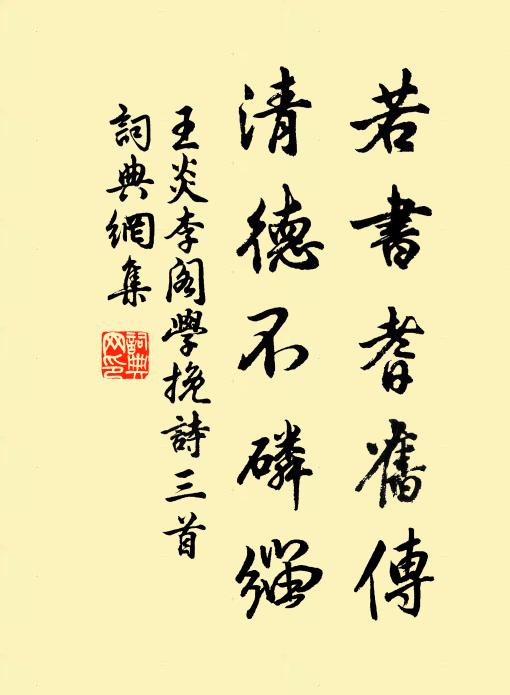 若書耆舊傳
清德不磷緇
王炎李閣學挽詩三首
詞典網集
詞典網印